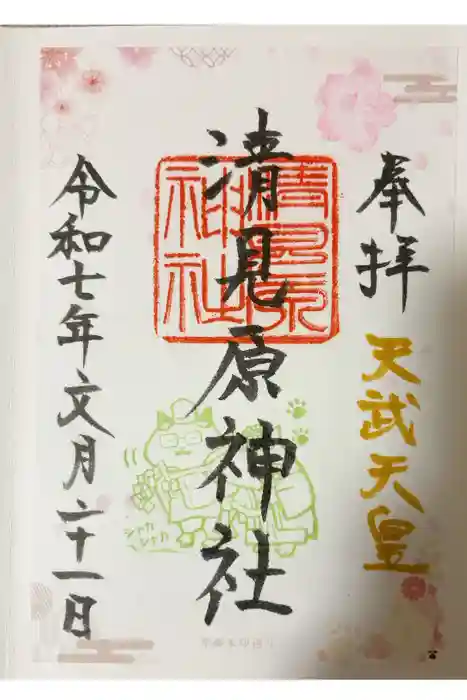 奉拝
天武天皇
清見原神社
清見原神社
令和七年文月二十一日